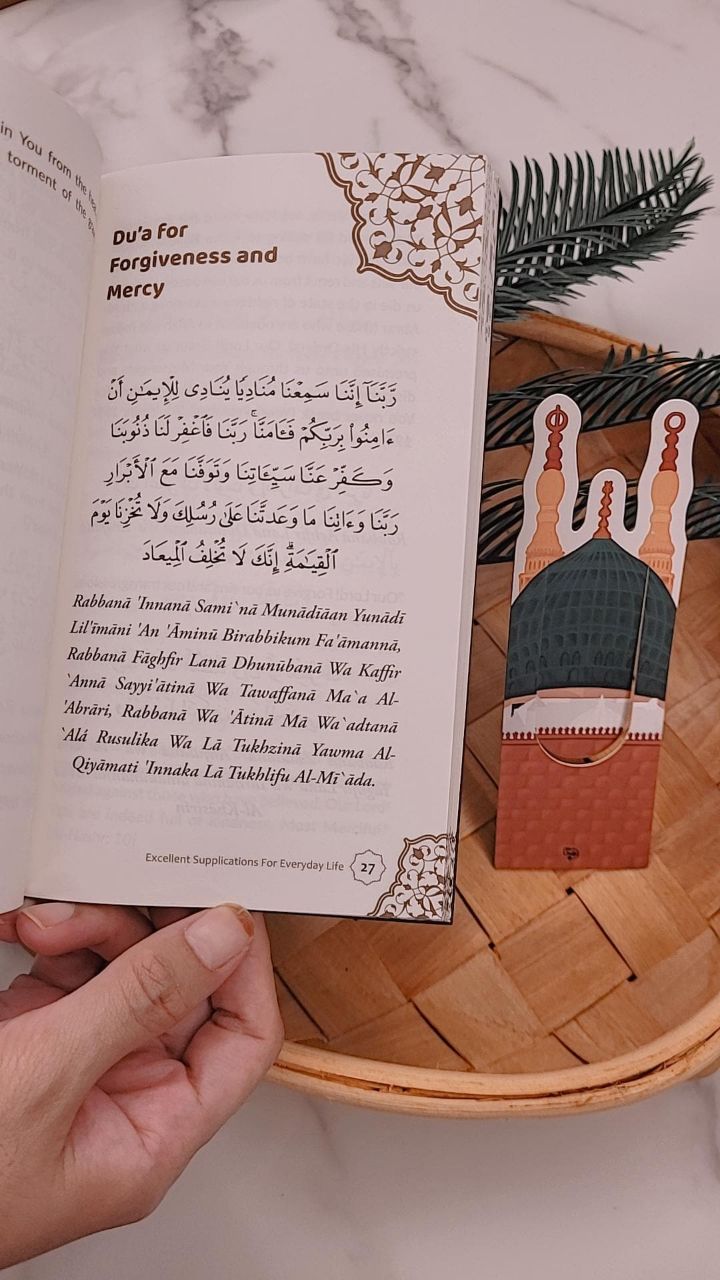 in You from the
torment of the
Du'a For
Forgiveness and
Mercy
رَّبَّنَآ إِنَّنَا سَمِعْنَا مُنَادِيًا يُنَادِى لِلْإِيمَـٰنِ أَنْ
ءَامِنُوا۟ بِرَبِّكُمْ فَـَٔامَنَّا ۚ رَبَّنَا فَٱغْفِرْ لَنَا ذُنُوبَنَا
وَكَفِّرْ عَنَّا سَيِّـَٔاتِنَا وَتَوَفَّنَا مَعَ ٱلْأَبْرَارِ
رَبَّنَا وَءَاتِنَا مَا وَعَدتَّنَا عَلَىٰ رُسُلِكَ وَلَا تُخْزِنَا يَوْمَ
ٱلْقِيَـٰمَةِ ۗ إِنَّكَ لَا تُخْلِفُ ٱلْمِيعَادَ
Rabbanā 'Innanā Sami`nā Munādīāan Yunādī
Lil'īmāni 'An 'Āminū Birabbikum Fa'āmannā,
Rabbanā Fāghfir Lanā Dhunūbanā Wa Kaffir
`Annā Sayyi'ātinā Wa Tawaffanā Ma`a Al-
'Abrāri, Rabbanā Wa 'Ātinā Mā Wa`adtanā
`Alá Rusulika Wa Lā Tukhzinā Yawma Al-
Qiyāmati 'Innaka Lā Tukhlifu Al-Mī`āda.
Excellent Supplications For Everyday Life 27